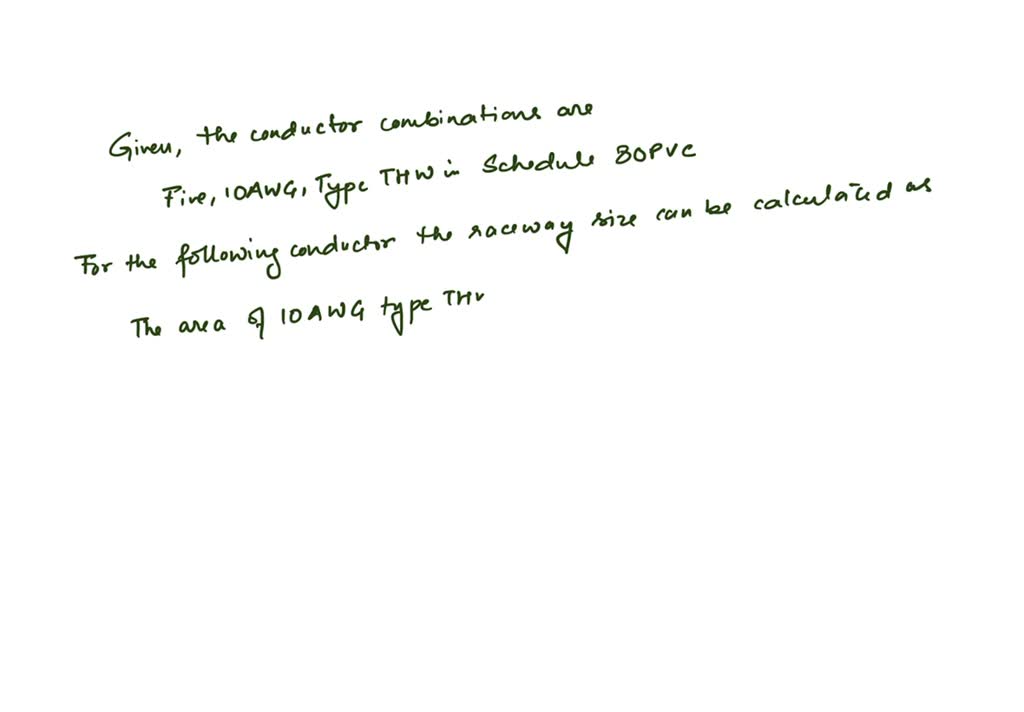 Given, the conductor combinations are
Five, 10AWG, Type THW in Schedule 80PVC
For the following conductor the raceway size can be calculated as
The area of 10AWG type THV